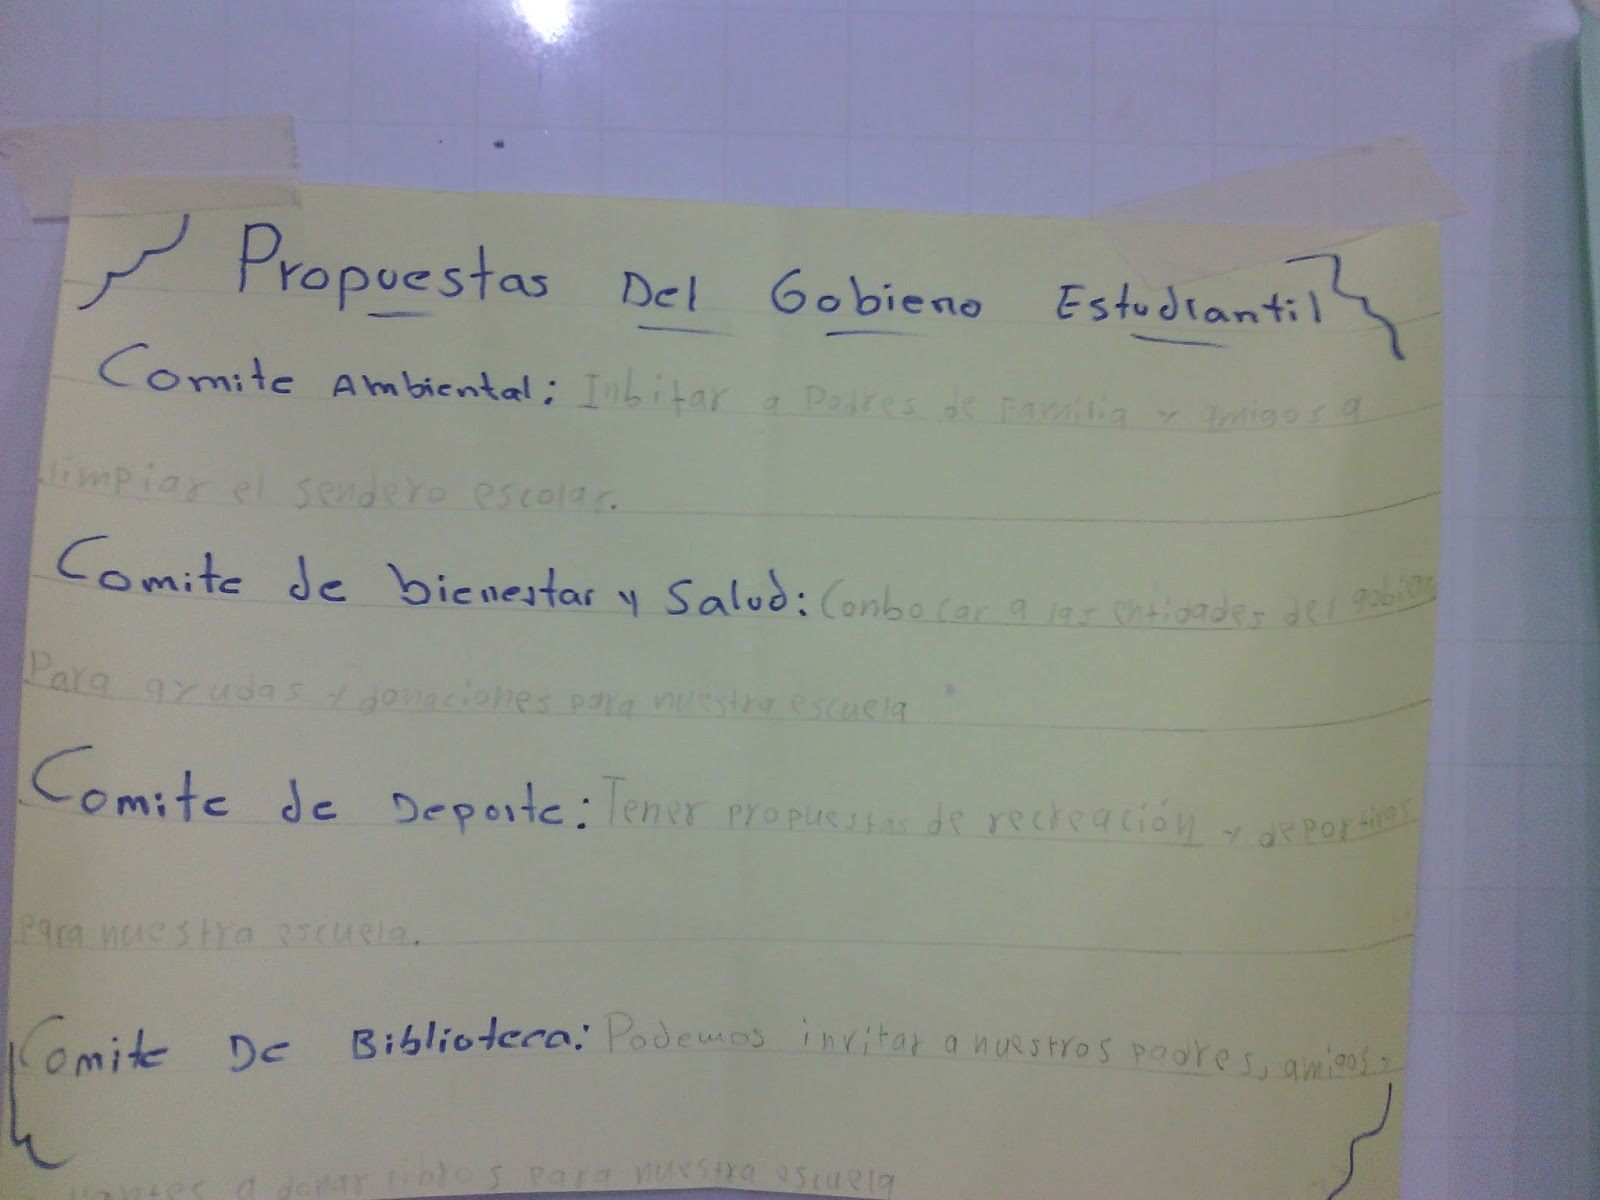 Propuestas Del Gobieno Estudiantil
Comite Ambiental: Inbitar a Padres de Familia y amigos a
limpiar el sendero escolar.
Comite de bienestar y Salud: Conbocar a las entidades del
Para ayudas y donaciones para nuestra escuela
Comite de Deporte: Tener propuestas de recreación y deportivas
para nuestra escuela.
Comite De Biblioteca: Podemos invitar a nuestros padres, amigos
a donar libros para nuestra escuela